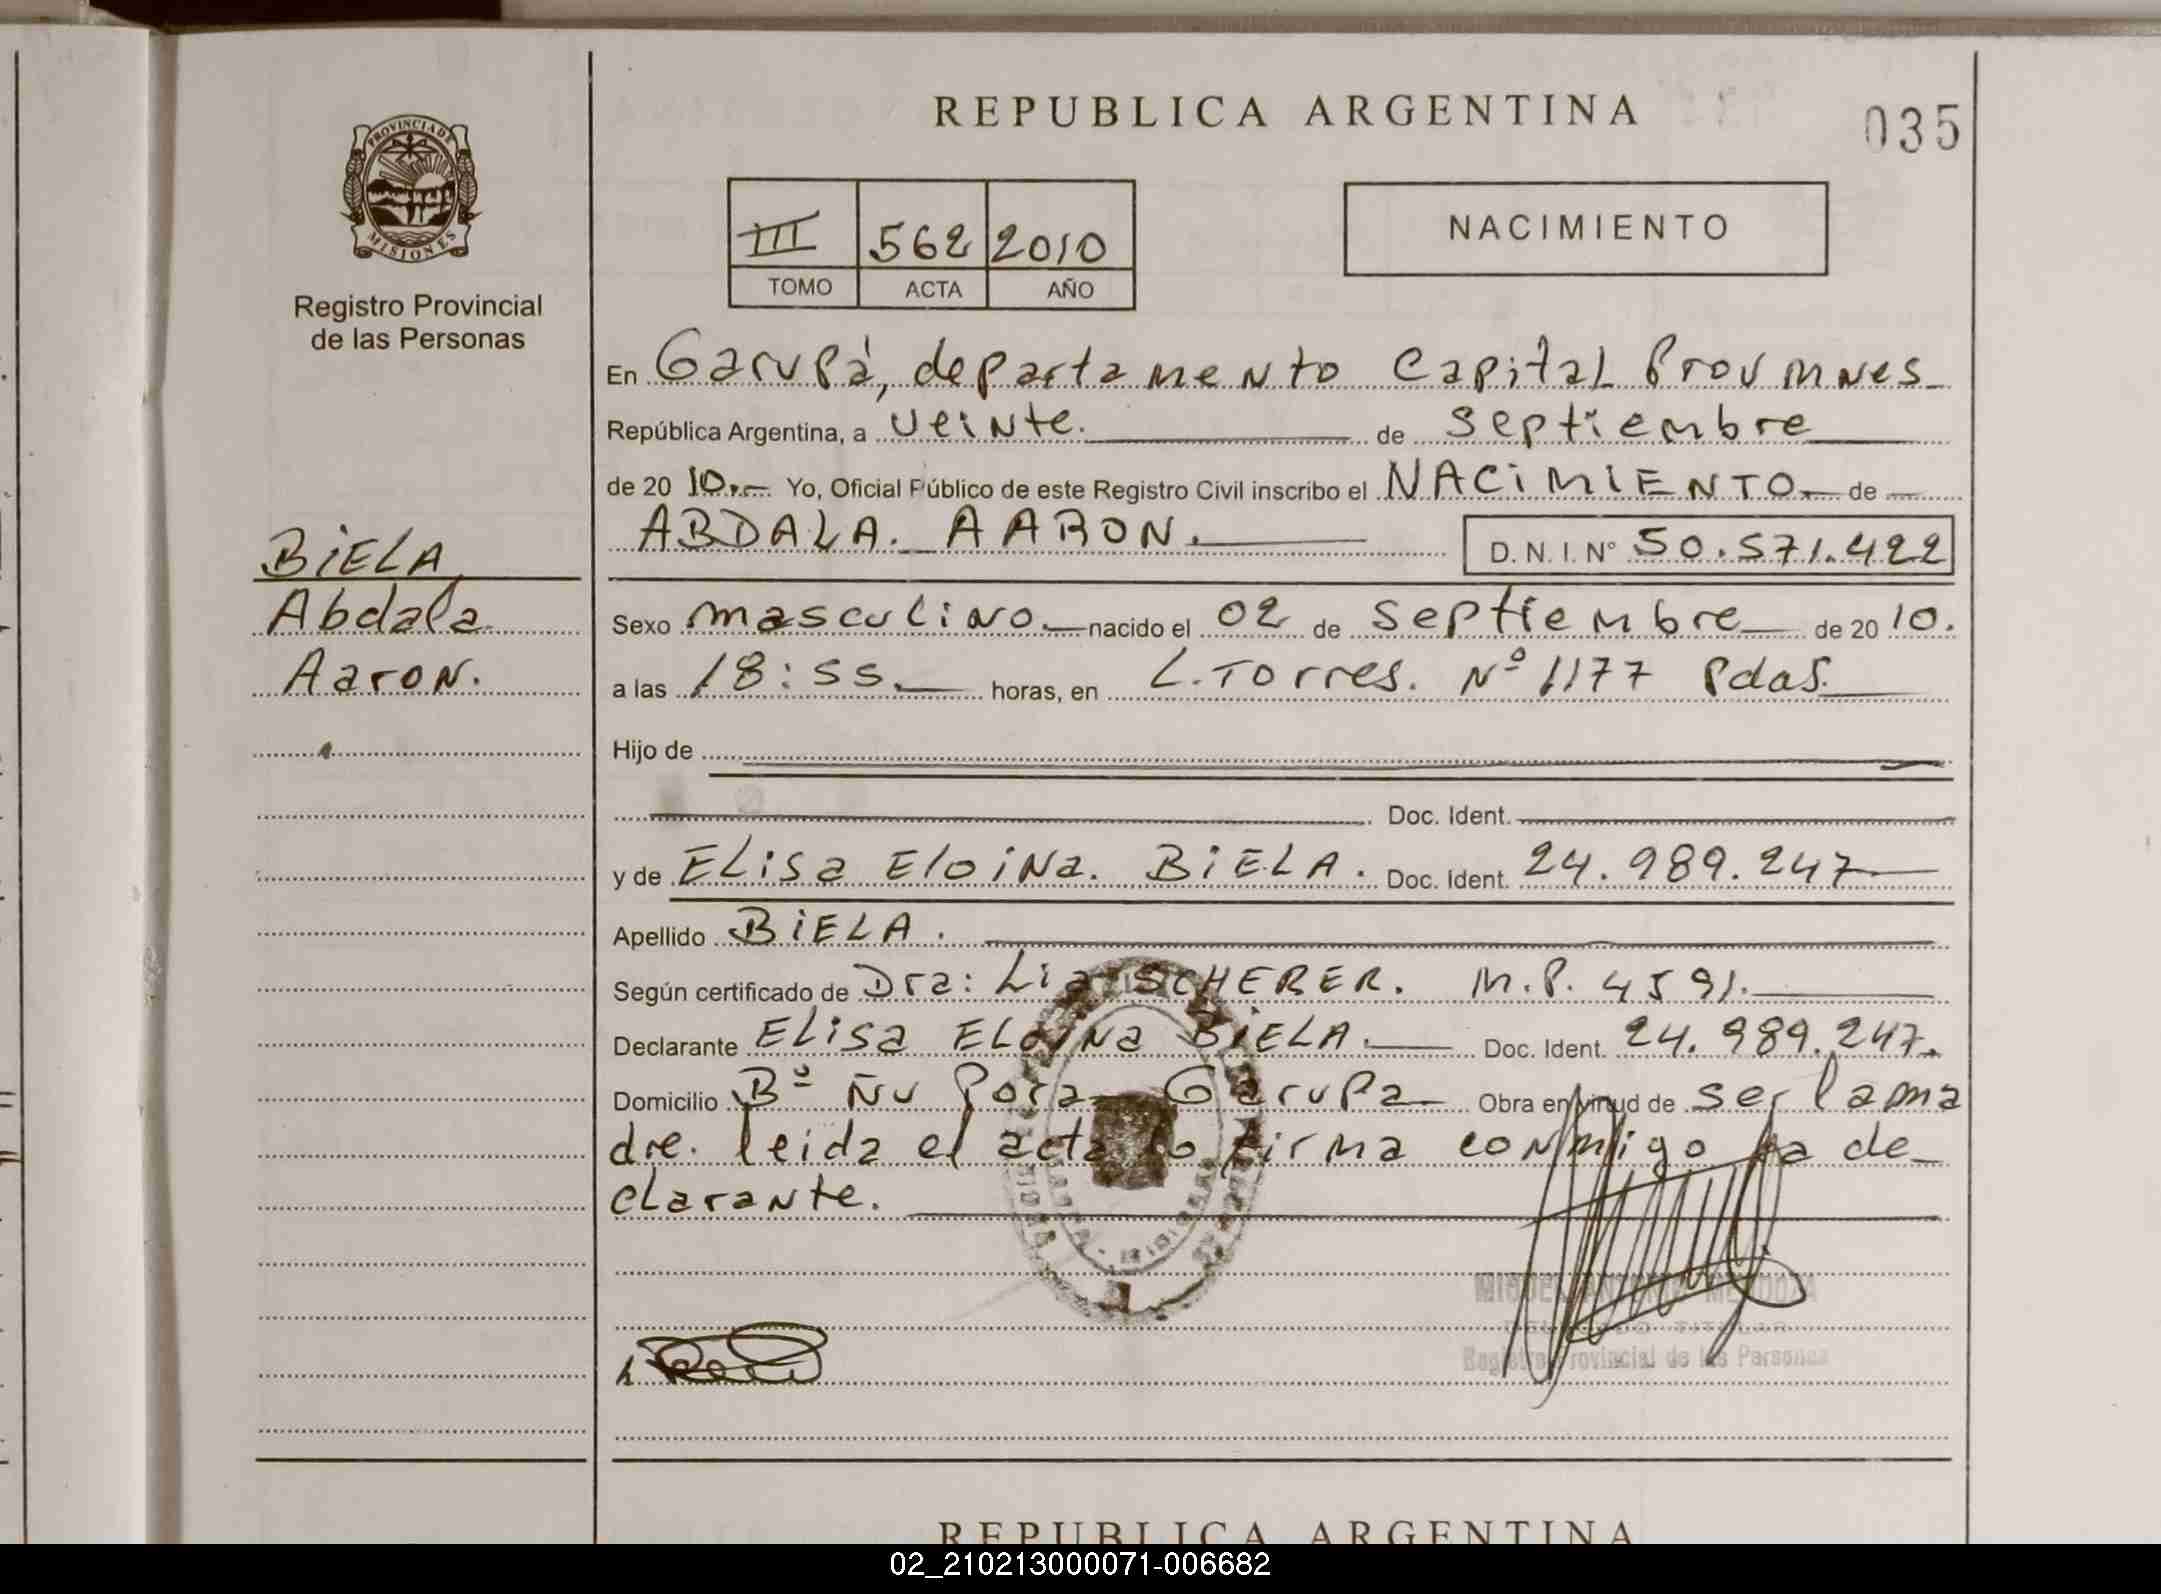 REPUBLICA ARGENTINA
035
PROVINCIA DE
MISIONES
Registro Provincial
de las Personas
III 562 2010
TOMO ACTA AÑO
NACIMIENTO
En Garupá, departamento Capital Prov Mnes
República Argentina, a veinte. de septiembre
de 20 10.- Yo, Oficial Público de este Registro Civil inscribo el NACIMIENTO de
ABDALA. AARON. D. N. I. N° 50.571.422
BIELA
Abdala
Aaron.
Sexo masculino. nacido el 02 de septiembre de 20 10.
a las 18:55. horas, en L. Torres. Nº 1177 Pdas.
Hijo de
Doc. Ident.
y de Elisa Eloina. BIELA. Doc. Ident. 24.989.247
Apellido BIELA.
Según certificado de Dra: Lia SCHERER. M.P. 4591.
Declarante Elisa Eloina BIELA. Doc. Ident. 24.989.247.
Domicilio Bº Ñu Pora Garupa Obra en virtud de ser la ma
dre. leida el acta lo firma conmigo la de_
clarante.
MIGUEL ANTONIO MENDOZA
DELEGADO TITULAR
Registro Provincial de las Personas
REPUBLICA ARGENTINA
02_210213000071-006682